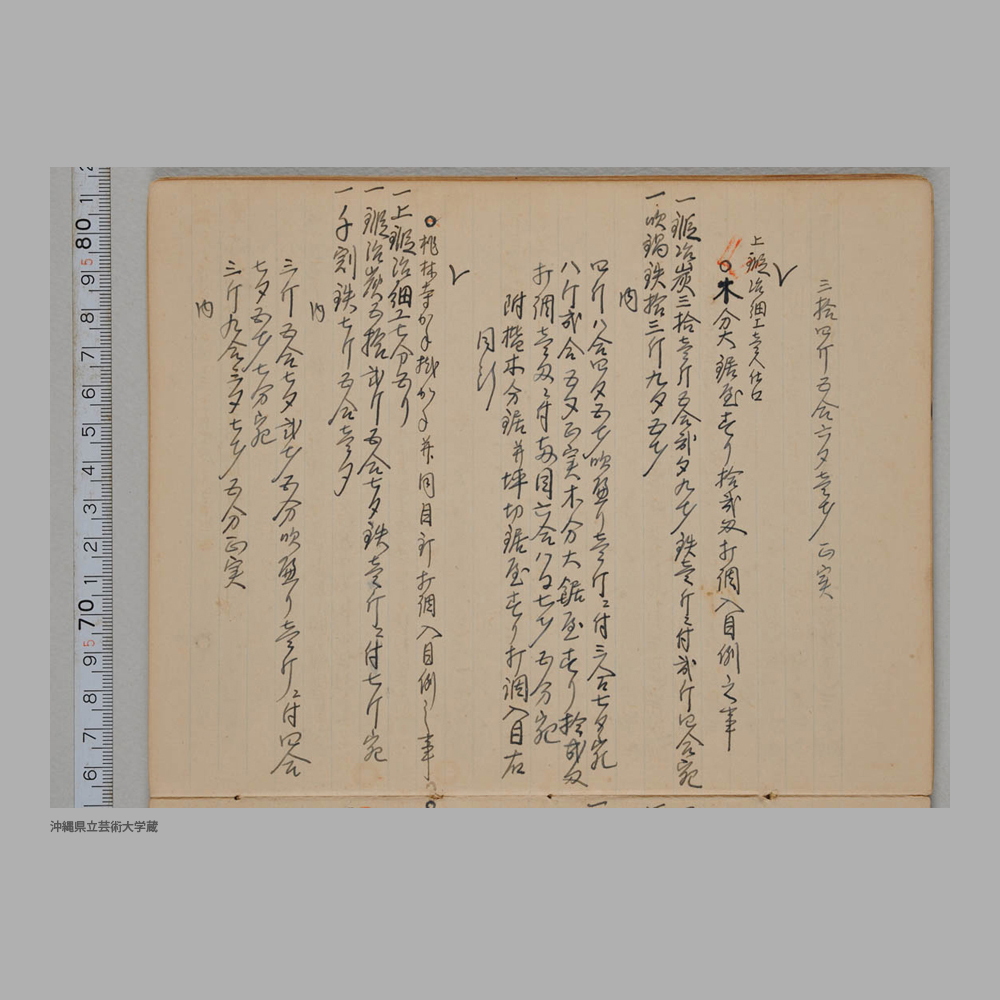 三拾四斤五合六夕壱才正実
上鍛冶細工壱人仕口
○木分大鋸屋すり拾弐双打調入目例之事
一鍛冶炭三拾壱斤五合弐夕九才鉄壱斤ニ付弐斤四合宛
一吹鍋鉄拾三斤九夕五才
内
四斤八合四夕五才吹鍛り壱斤ニ付三合七夕宛
八斤弐合五夕正実木分大鋸屋すり拾弐双
打調壱双ニ付本目六合八夕七才五分宛
附樫木分鋸并坪切鋸屋すり打調入目右
同断
○桃林寺かすかい掛かすかい并同目釘打調入目例之事
一上鍛冶細工七分五り
一鍛冶炭五拾弐斤五合七夕鉄壱斤ニ付七斤宛
一千割鉄七斤五合壱夕
内
三斤五合七夕弐才五分吹鍛り壱斤ニ付四合
七夕五才七分宛
三斤九合三夕七才五分正実
内
沖縄県立芸術大学蔵